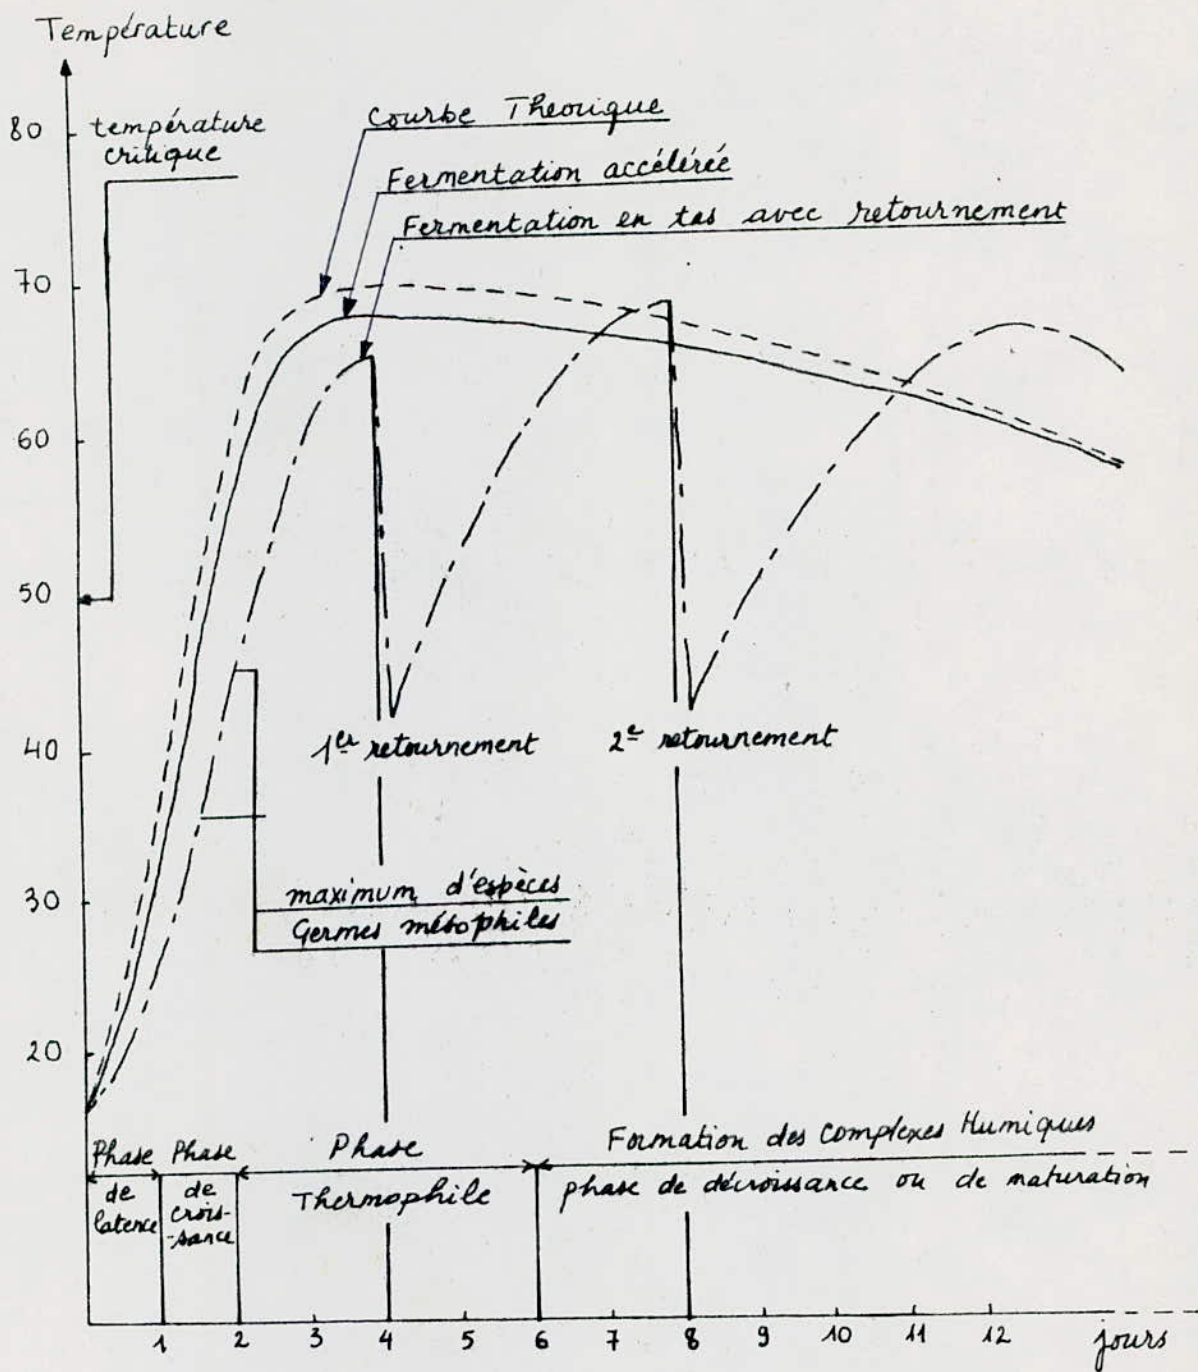 Température
80
température
critique
Courbe Théorique
Fermentation accélérée
Fermentation en tas avec retournement
70
60
50
40
1er retournement
2e retournement
30
maximum d'espèces
Germes mésophiles
20
Phase
de
latence
Phase
de
crois-
-sance
Phase
Thermophile
Formation des complexes Humiques
phase de décroissance ou de maturation
1 2 3 4 5 6 7 8 9 10 11 12 jours